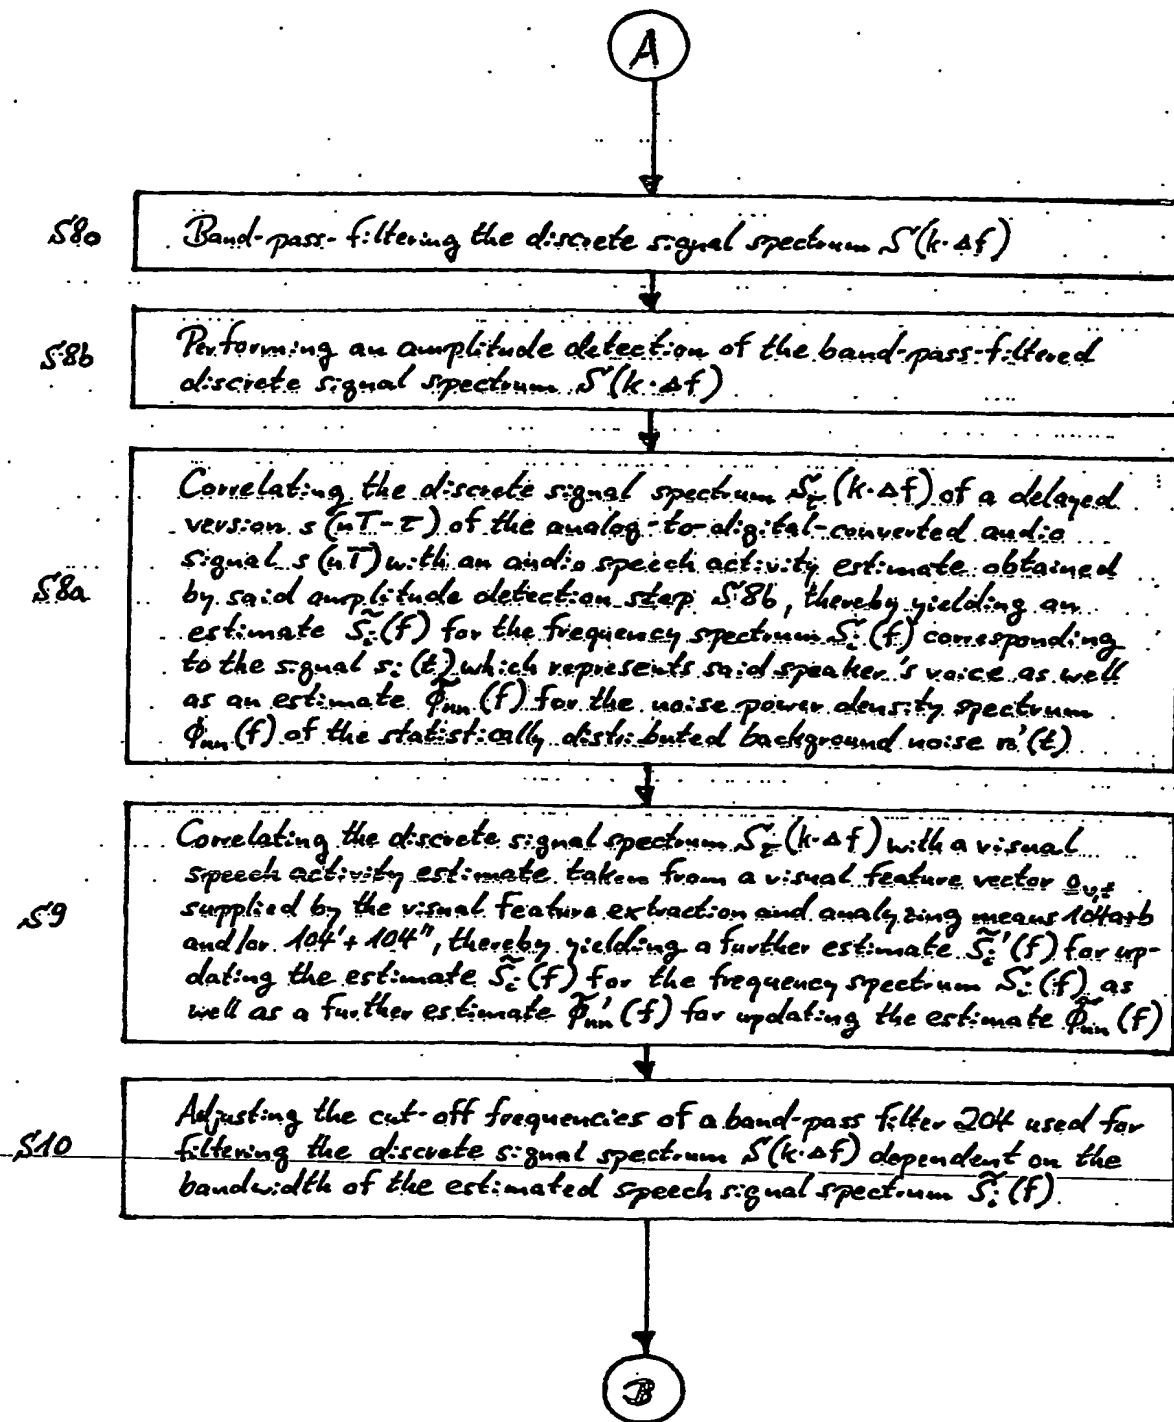 A
S8o Band-pass-filtering the discrete signal spectrum S(k·Δf)
S8b Performing an amplitude detection of the band-pass-filtered
discrete signal spectrum S(k·Δf)
Correlating the discrete signal spectrum S_τ(k·Δf) of a delayed
version s(nT-τ) of the analog-to-digital-converted audio
signal s(nT) with an audio speech activity estimate obtained
S8a by said amplitude detection step S8b, thereby yielding an
estimate S̃_i(f) for the frequency spectrum S_i(f) corresponding
to the signal s_i(t) which represents said speaker's voice as well
as an estimate Φ̃_nn(f) for the noise power density spectrum
Φ_nn(f) of the statistically distributed background noise n'(t)
Correlating the discrete signal spectrum S_τ(k·Δf) with a visual
speech activity estimate taken from a visual feature vector o_v,t
S9 supplied by the visual feature extraction and analyzing means 104a+b
and/or 104'+104", thereby yielding a further estimate S̃_i'(f) for up-
dating the estimate S̃_i(f) for the frequency spectrum S_i(f) as
well as a further estimate Φ̃_nn'(f) for updating the estimate Φ̃_nn(f)
Adjusting the cut-off frequencies of a band-pass filter 204 used for
S10 filtering the discrete signal spectrum S(k·Δf) dependent on the
bandwidth of the estimated speech signal spectrum S̃_i(f)
B